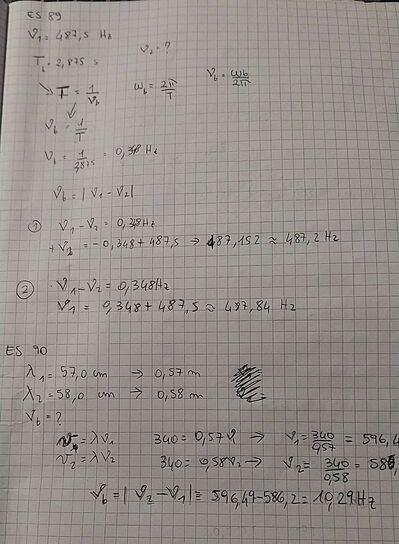 ES 89
ν₁ = 487,5 Hz
ν₂ = ?
T_b = 2,875 s
T = 1/ν_b
ω_b = 2π/T
ν_b = ω_b/2π
ν_b = 1/T
ν_b = 1/2,875 = 0,348 Hz
ν_b = |ν₁ - ν₂|
① ν₁ - ν₂ = 0,348Hz
+ν₂ = -0,348 + 487,5 → 487,152 ≈ 487,2 Hz
② ν₁ - ν₂ = 0,348Hz
ν₁ = 0,348 + 487,5 ≈ 487,84 Hz
ES 90
λ₁ = 57,0 cm → 0,57 m
λ₂ = 58,0 cm → 0,58 m
ν_b = ?
= λν₁ 340 = 0,57ν → ν₁ = 340/0,57 = 596,4
= λν₂ 340 = 0,58ν₂ → ν₂ = 340/0,58 =
ν_b = |ν₂ - ν₁| = 596,49 - 586,2 = 10,29 Hz